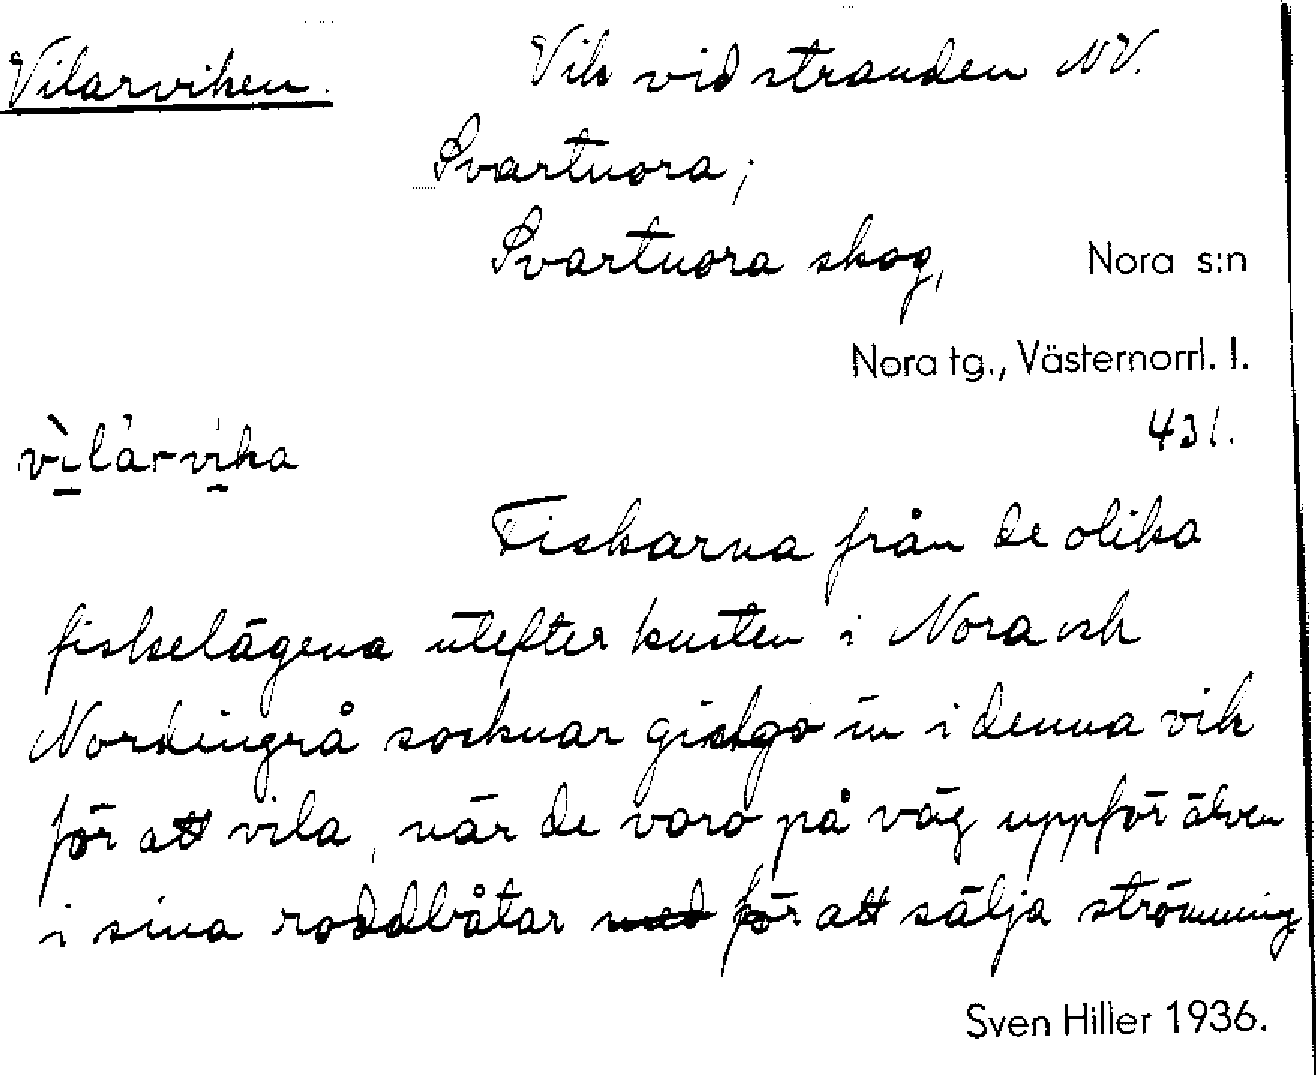 Vilarviken. Vik vid stranden NV.
Svartnora;
Svartnora skog, Nora s:n
Nora tg., Västernorrl. l.
431.
vìlàrvika
Fiskarna från de olika
fiskelägena utefter kusten i Nora och
Nordingrå socknar gick in i denna vik
för att vila, när de voro på väg uppför älven
i sina roddbåtar för att sälja strömming
Sven Hiller 1936.